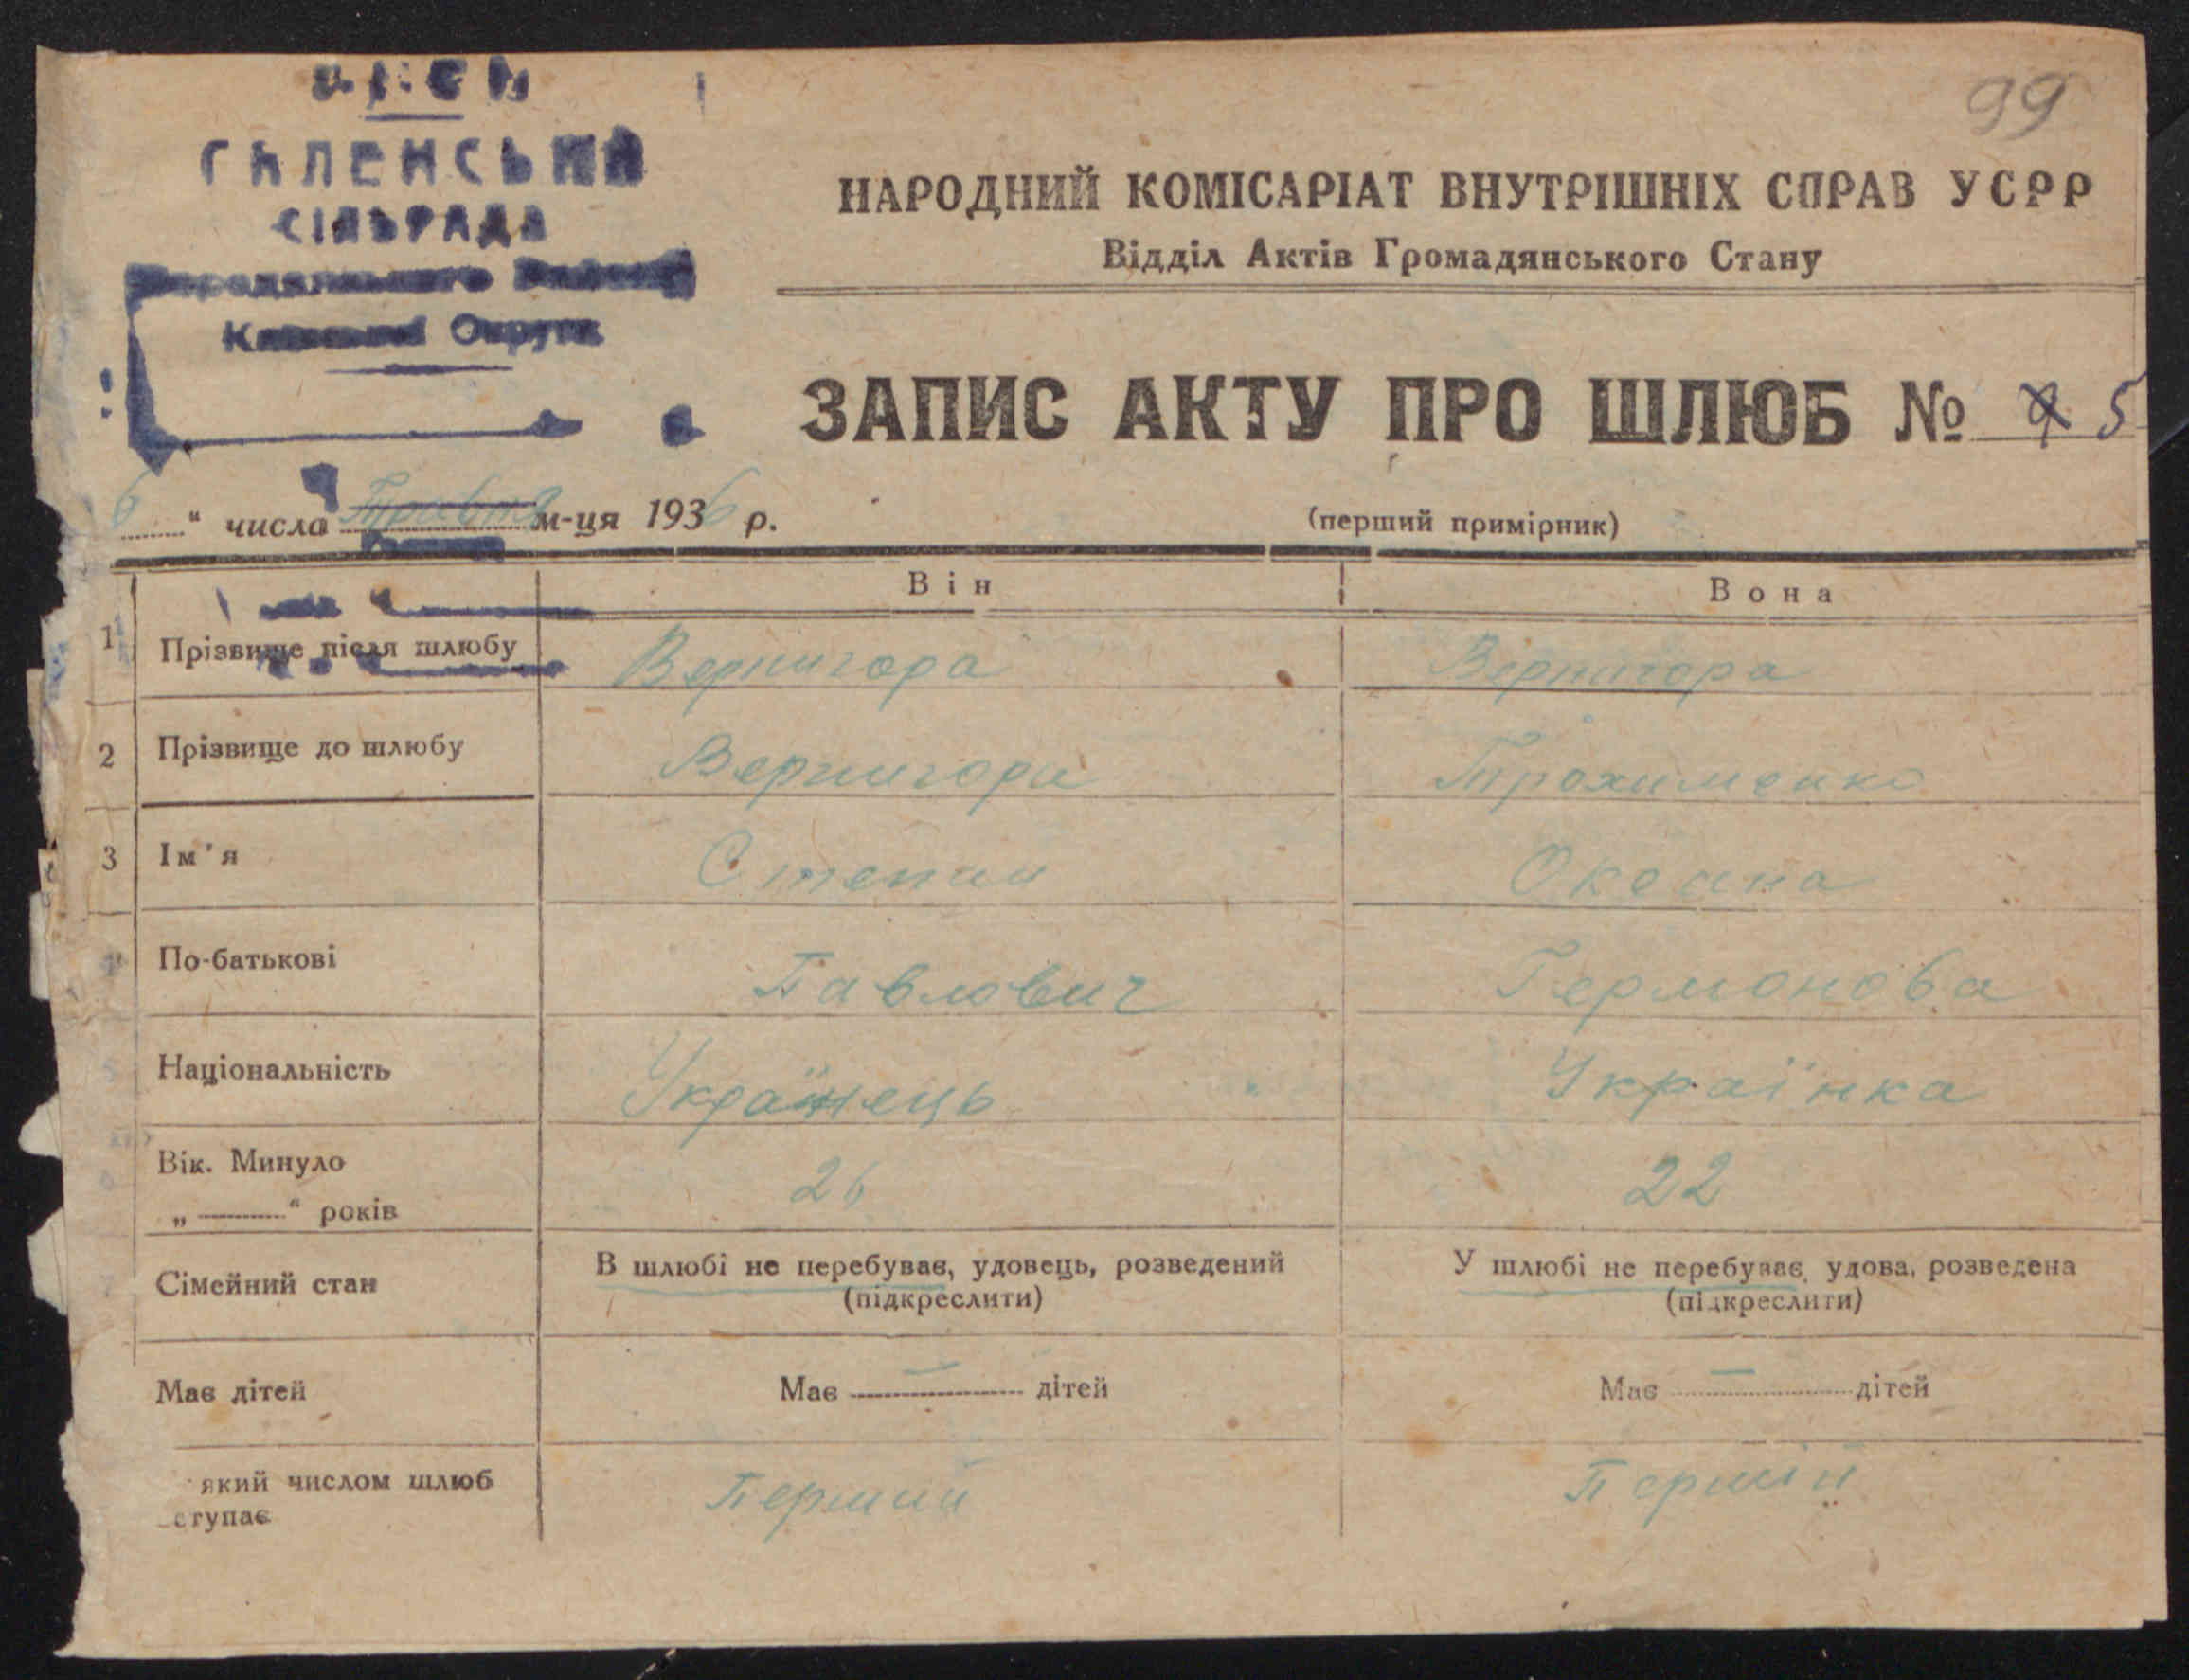 99
СІЛЬРАДА
Округи
НАРОДНИЙ КОМІСАРІАТ ВНУТРІШНІХ СПРАВ УСРР
Відділ Актів Громадянського Стану
ЗАПИС АКТУ ПРО ШЛЮБ № 5
6 " числа Травня м-ця 1936 р.
(перший примірник)
Він Вона
1 Прізвище після шлюбу Вернигора Вернигора
2 Прізвище до шлюбу Вернигора Трохименко
3 Ім'я Степан
По-батькові Павлович Гермонова
Національність Українець Українка
Вік. Минуло 26 22
„ " років
Сімейний стан В шлюбі не перебуває, удовець, розведений У шлюбі не перебуває, удова, розведена
(підкреслити) (підкреслити)
Має дітей Має — дітей Має — дітей
який числом шлюб Перший Першій
ступає